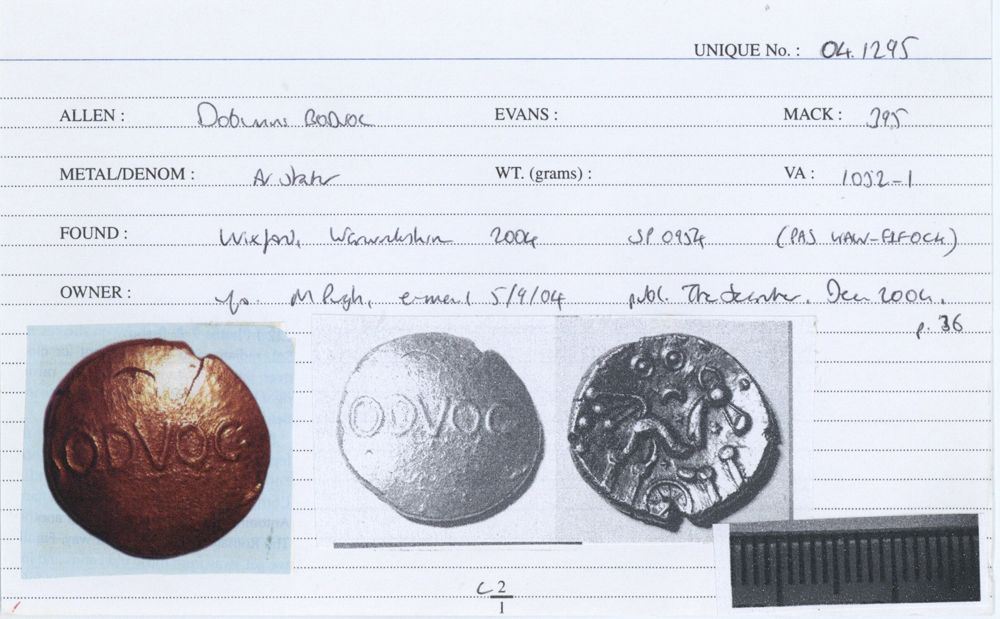 UNIQUE No. : 04.1295
ALLEN : Dobunni BODVOC EVANS : MACK : 395
METAL/DENOM : AV stater WT. (grams) : VA : 1052-1
FOUND : Wixford, Warwickshire 2004 SP 0954 (PAS WAW-
OWNER : M Pugh, 5/9/04 publ. The Searcher, Dec 2004,
p. 36
ODVOC
ODVOC
C 2
1